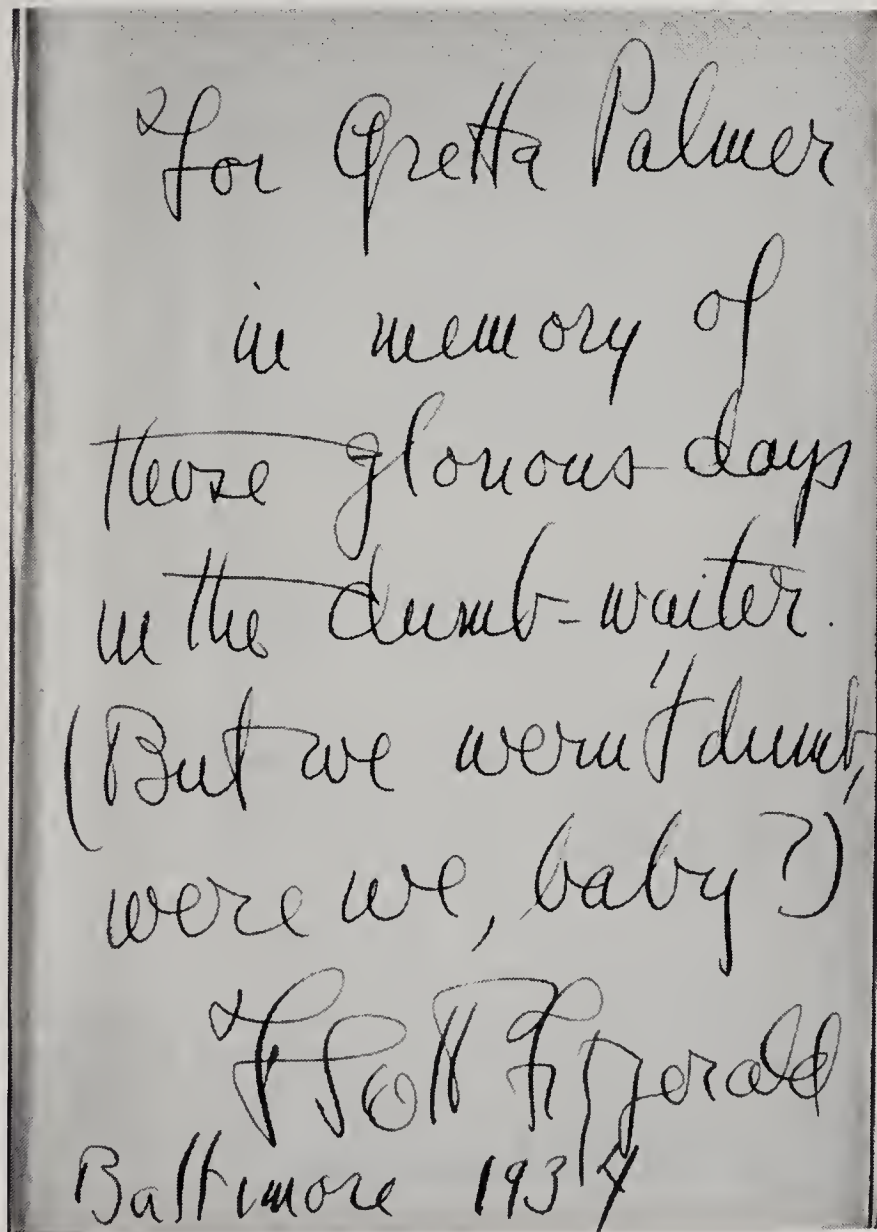 For Gretta Palmer
in memory of
those glorious days
in the dumb-waiter.
(But we wern't dumb,
were we, baby?)
F Scott Fitzgerald
Baltimore 1934